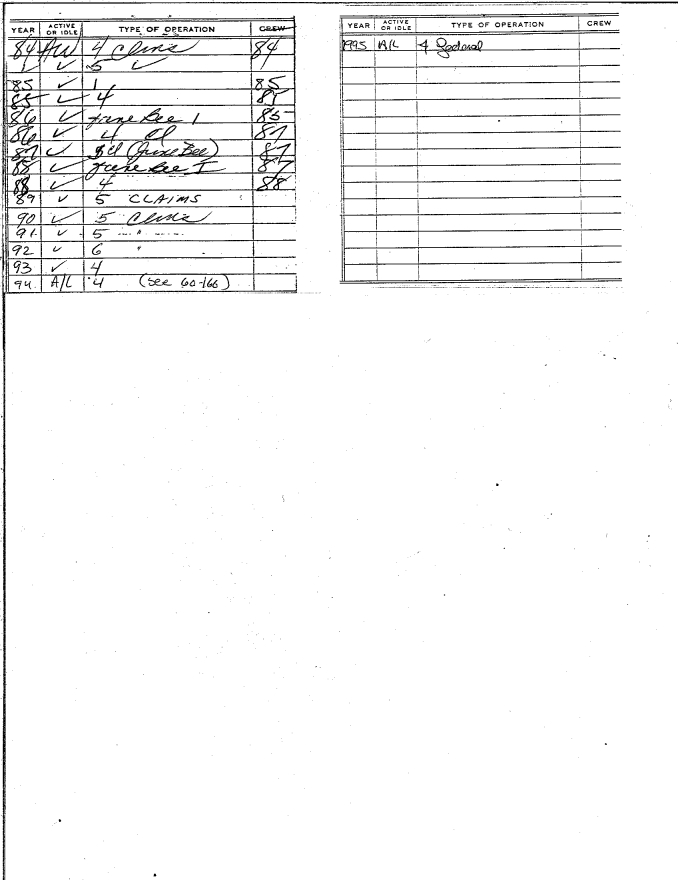 YEAR ACTIVE OR IDLE TYPE OF OPERATION CREW
84 AW 4 Claims 84
✓ 5 ✓
85 ✓ 1 85
85 ✓ 4 85
86 ✓ June Bee 1 85
86 ✓ 4 Cl 87
87 ✓ (June Bee) 87
88 ✓ June Bee I 87
88 ✓ 4 88
89 ✓ 5 CLAIMS
90 ✓ 5 Claims
91 ✓ 5 " "
92 ✓ 6 "
93 ✓ 4
94 A/L 4 (See 60-166)
YEAR ACTIVE OR IDLE TYPE OF OPERATION CREW
1995 A/L 4